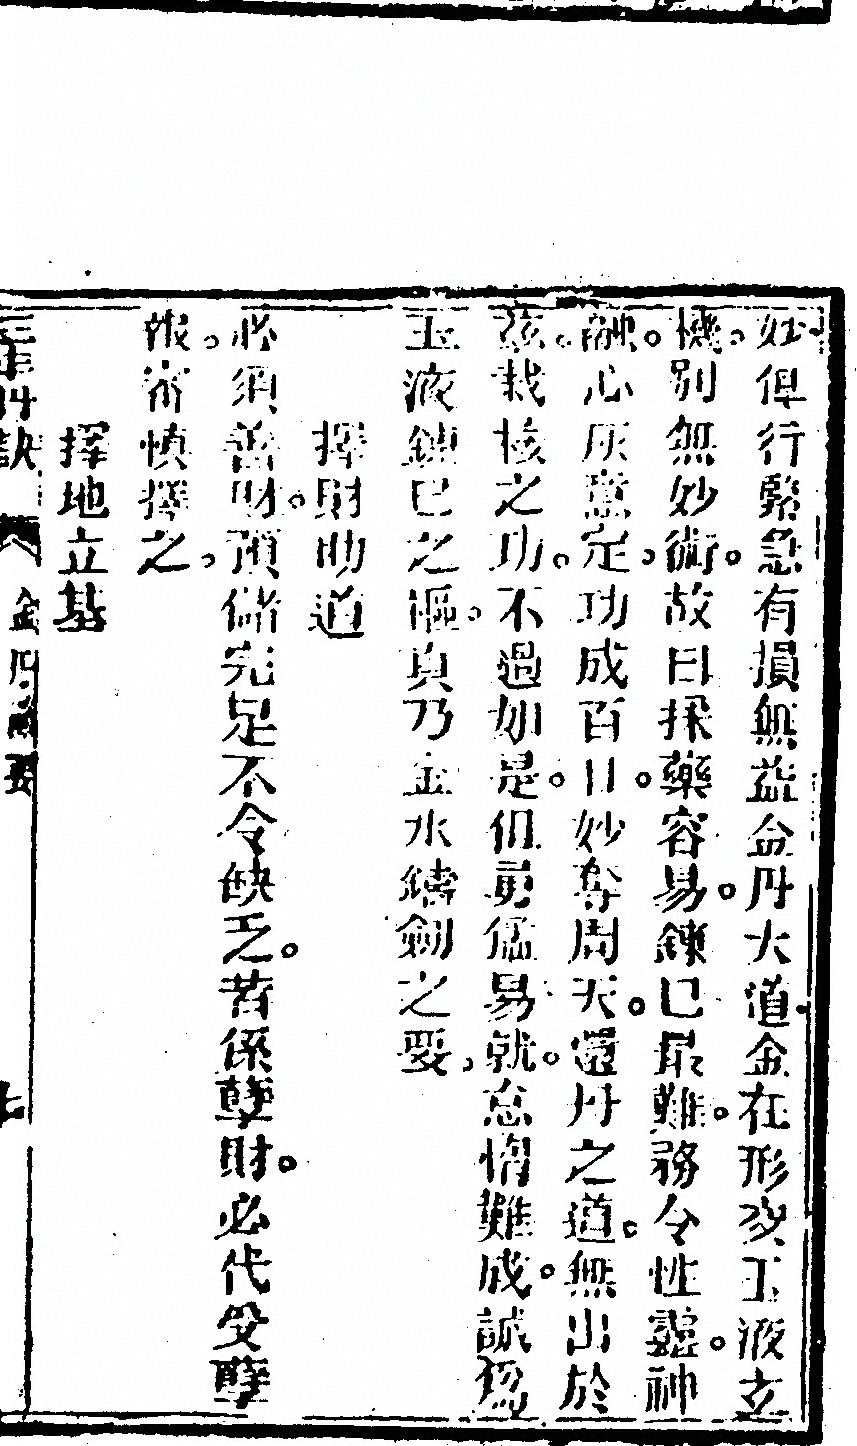 妙俾行緊急有損無益金丹大道金在形交玉液玄
機別無妙術。故曰採藥容易。鍊已最難。務令性靈。神
融。心灰意定。功成百日。妙奪周天。還丹之道。無出於
玆。栽核之功。不過如是。但勇猛易就。怠惰難成。誠為
玉液鍊已之樞。眞乃金水鑄劒之要。
擇財助道
必須善財。預儲完足不令缺乏。若係孽財。必代受孽
報。審慎擇之。
擇地立基
訣 金丹 要
七